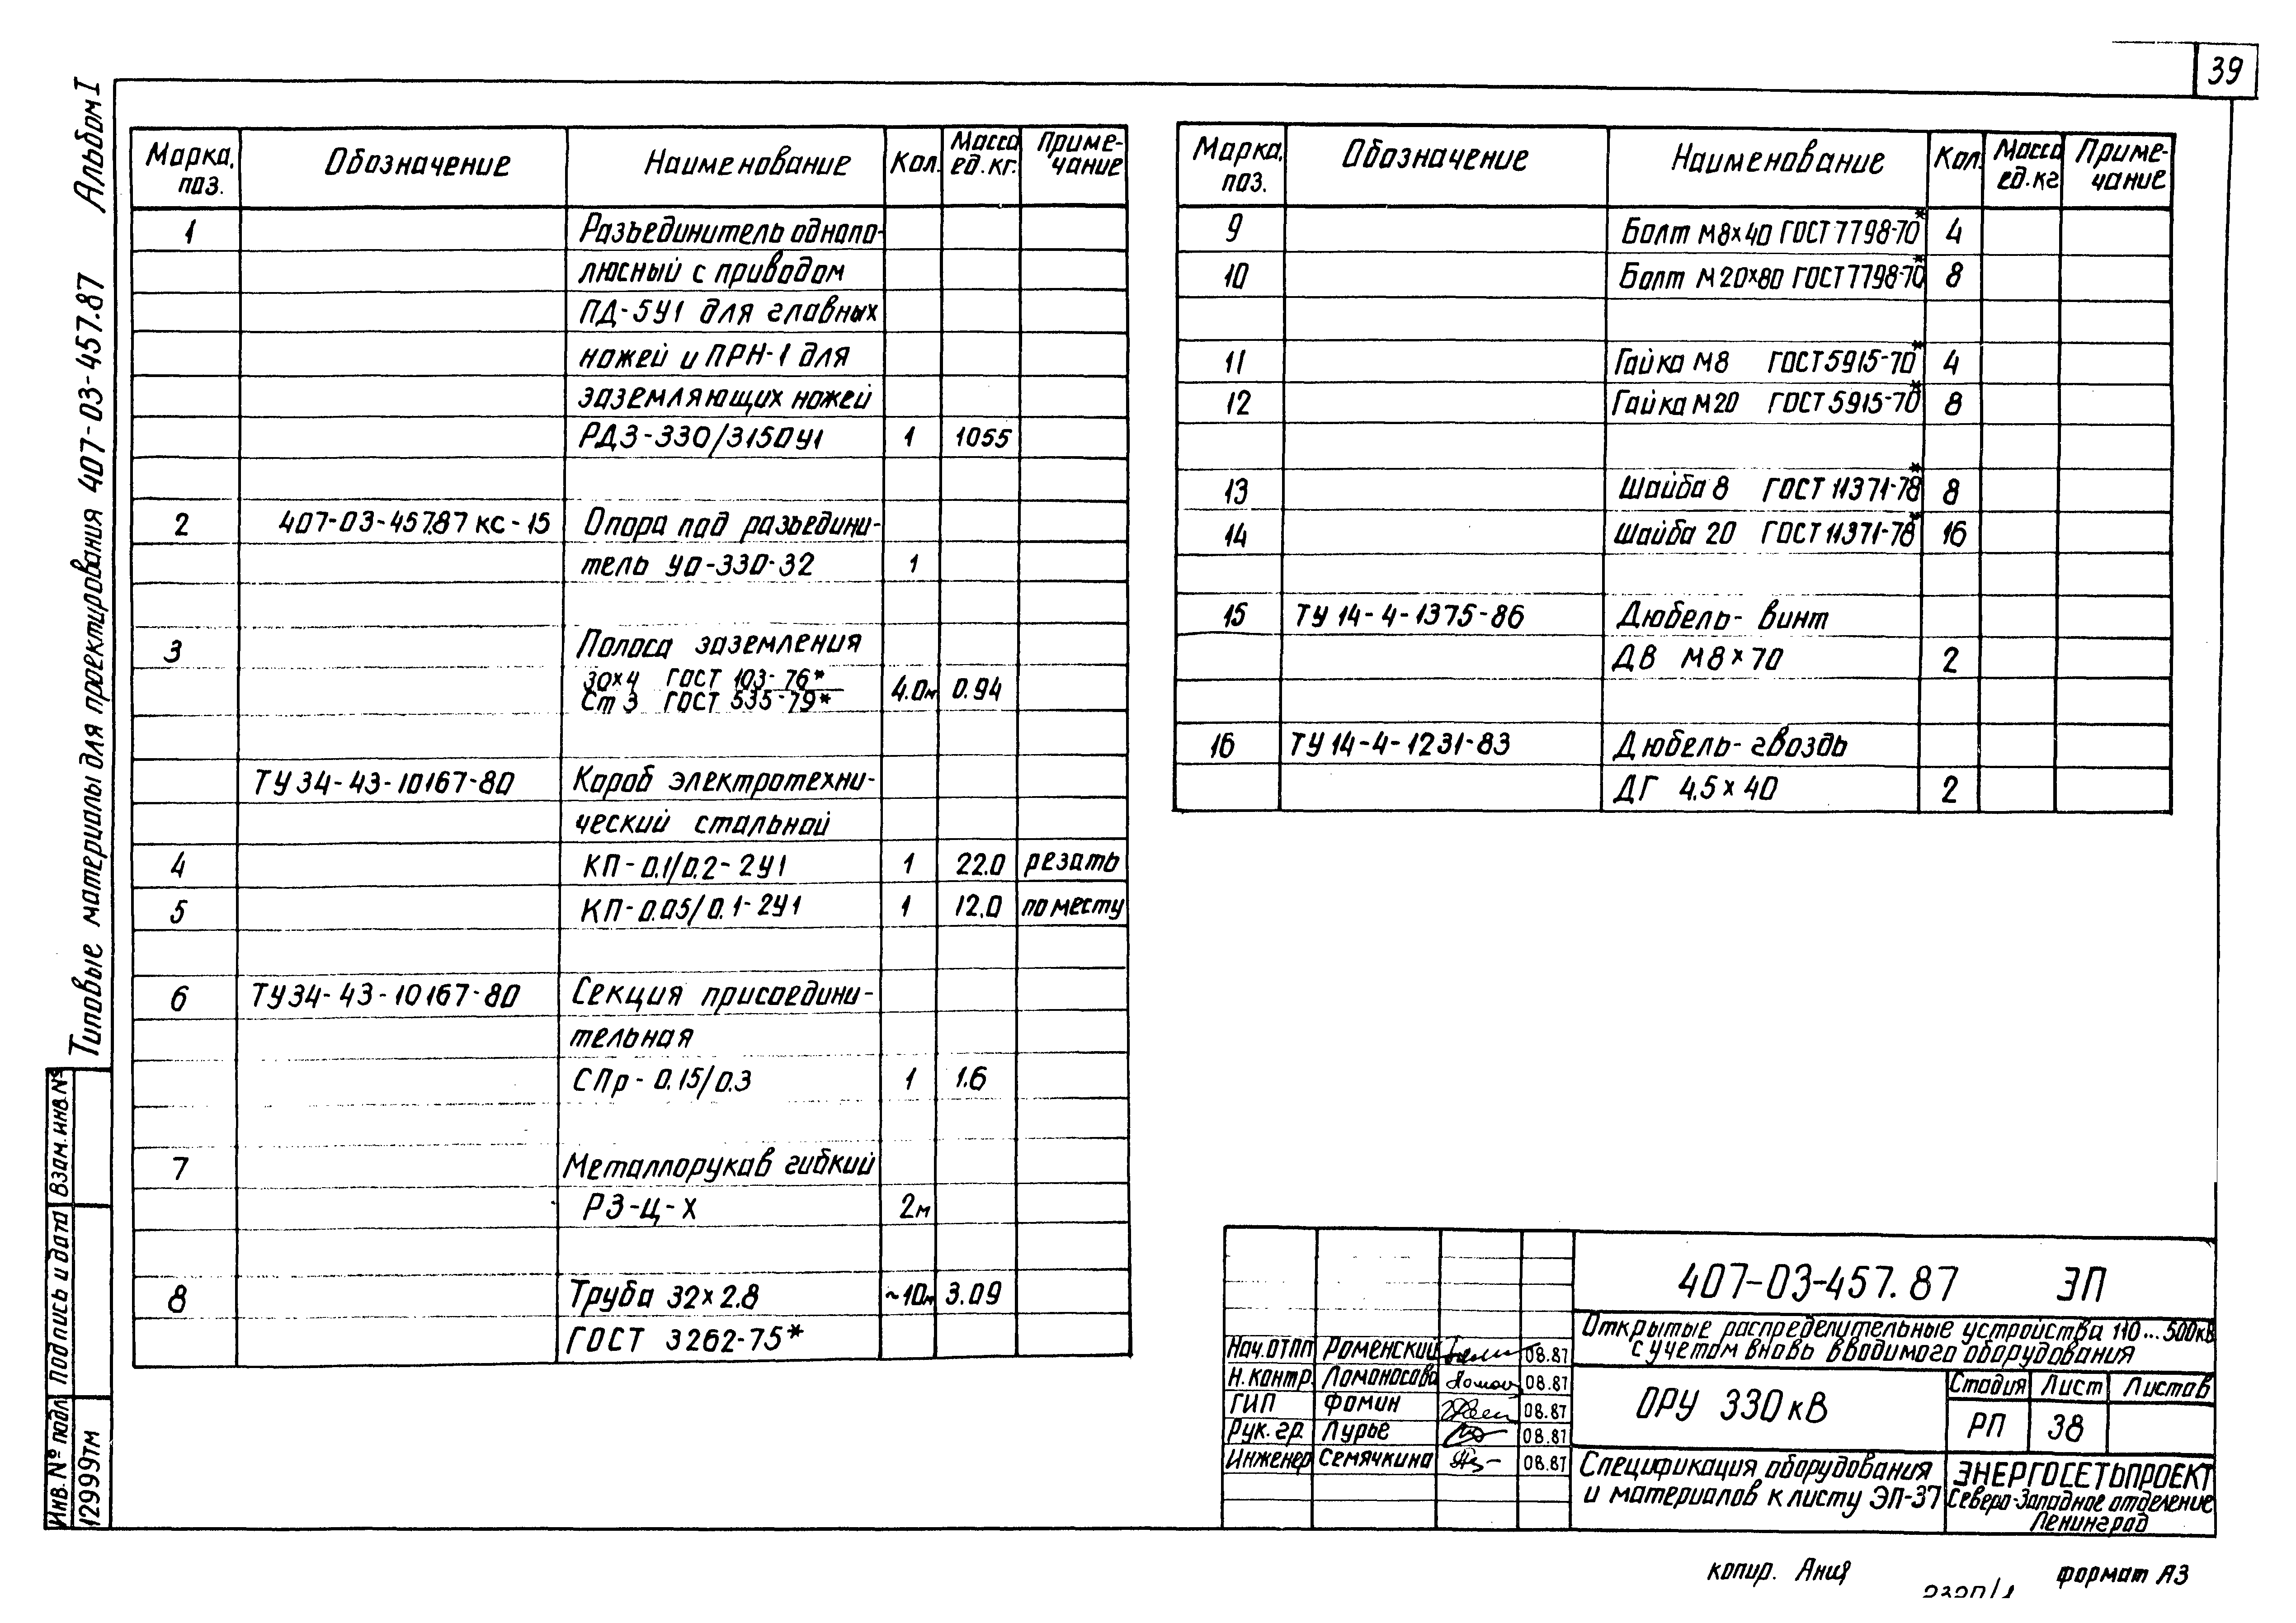 39
Типовые материалы для проектирования 407-03-457.87 Альбом I
Марка, поз. Обозначение Наименование Кол. Масса ед.кг. Приме-чание
1 Разъединитель однопо-
люсный с приводом
ПД-5У1 для главных
ножей и ПРН-1 для
заземляющих ножей
РДЗ-330/3150У1 1 1055
2 407-03-457.87 КС-15 Опора под разъедини-
тель УО-330-32 1
3 Полоса заземления
30×4 ГОСТ 103-76*
Ст 3 ГОСТ 535-79* 4.0м 0.94
ТУ 34-43-10167-80 Короб электротехни-
ческий стальной
4 КП-0.1/0.2-2У1 1 22.0 резать
5 КП-0.05/0.1-2У1 1 12.0 по месту
6 ТУ34-43-10167-80 Секция присоедини-
тельная
СПр-0.15/0.3 1 1.6
7 Металлорукав гибкий
РЗ-Ц-Х 2м
8 Труба 32×2.8 ~10м 3.09
ГОСТ 3262-75*
Марка, поз. Обозначение Наименование Кол. Масса ед.кг Приме-чание
9 Болт М8×40 ГОСТ 7798-70* 4
10 Болт М20×80 ГОСТ 7798-70* 8
11 Гайка М8 ГОСТ 5915-70* 4
12 Гайка М20 ГОСТ 5915-70* 8
13 Шайба 8 ГОСТ 11371-78* 8
14 Шайба 20 ГОСТ 11371-78* 16
15 ТУ 14-4-1375-86 Дюбель-винт
ДВ М8×70 2
16 ТУ 14-4-1231-83 Дюбель-гвоздь
ДГ 4.5×40 2
407-03-457.87 ЭП
Открытые распределительные устройства 110...500кВ
с учетом вновь вводимого оборудования
Нач.ОТПП Роменский 08.87
Н.контр. Ломоносова 08.87
ГИП Фомин 08.87
Рук.гр. Лурье 08.87
Инженер Семячкина 08.87
ОРУ 330 кВ
Стадия Лист Листов
РП 38
Спецификация оборудования
и материалов к листу ЭП-37
ЭНЕРГОСЕТЬПРОЕКТ
Северо-Западное отделение
Ленинград
Взам.инв.№
Подпись и дата
Инв.№ подл. 12999тм
копир. Ания формат А3